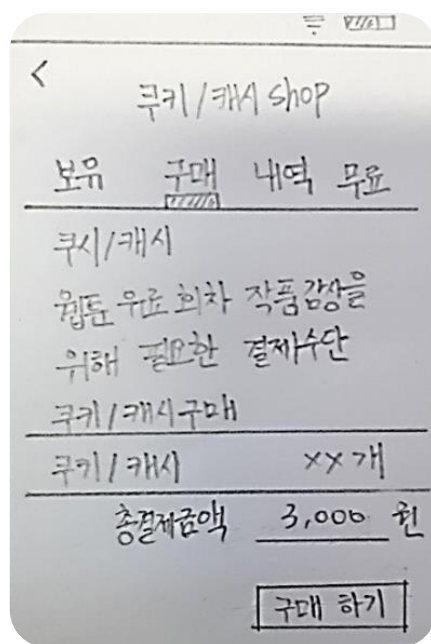 <
쿠키/캐시 shop
보유 구매 내역 무료
쿠시/캐시
웹툰 유료 회차 작품감상을
위해 필요한 결제수단
쿠키/캐시구매
쿠키/캐시 xx개
총결제금액 3,000 원
구매 하기